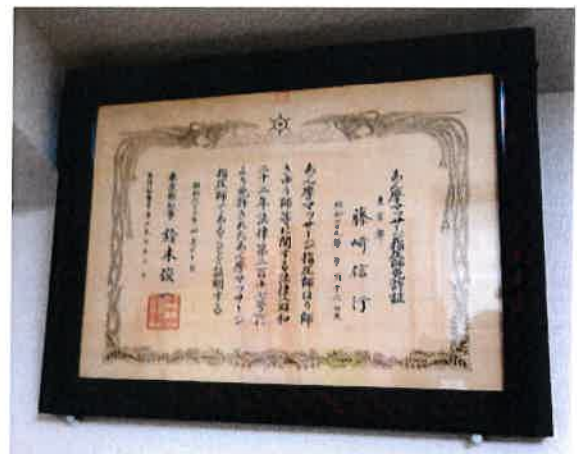 あん摩マッサージ指圧師免許証
東京都
藤崎信行
あん摩マッサージ指圧師はり師
きゆう師等に関する法律昭和
二十二年法律第二百十七号に
より免許されたあん摩マッサージ
指圧師であることを証明する
東京都知事 鈴木俊一